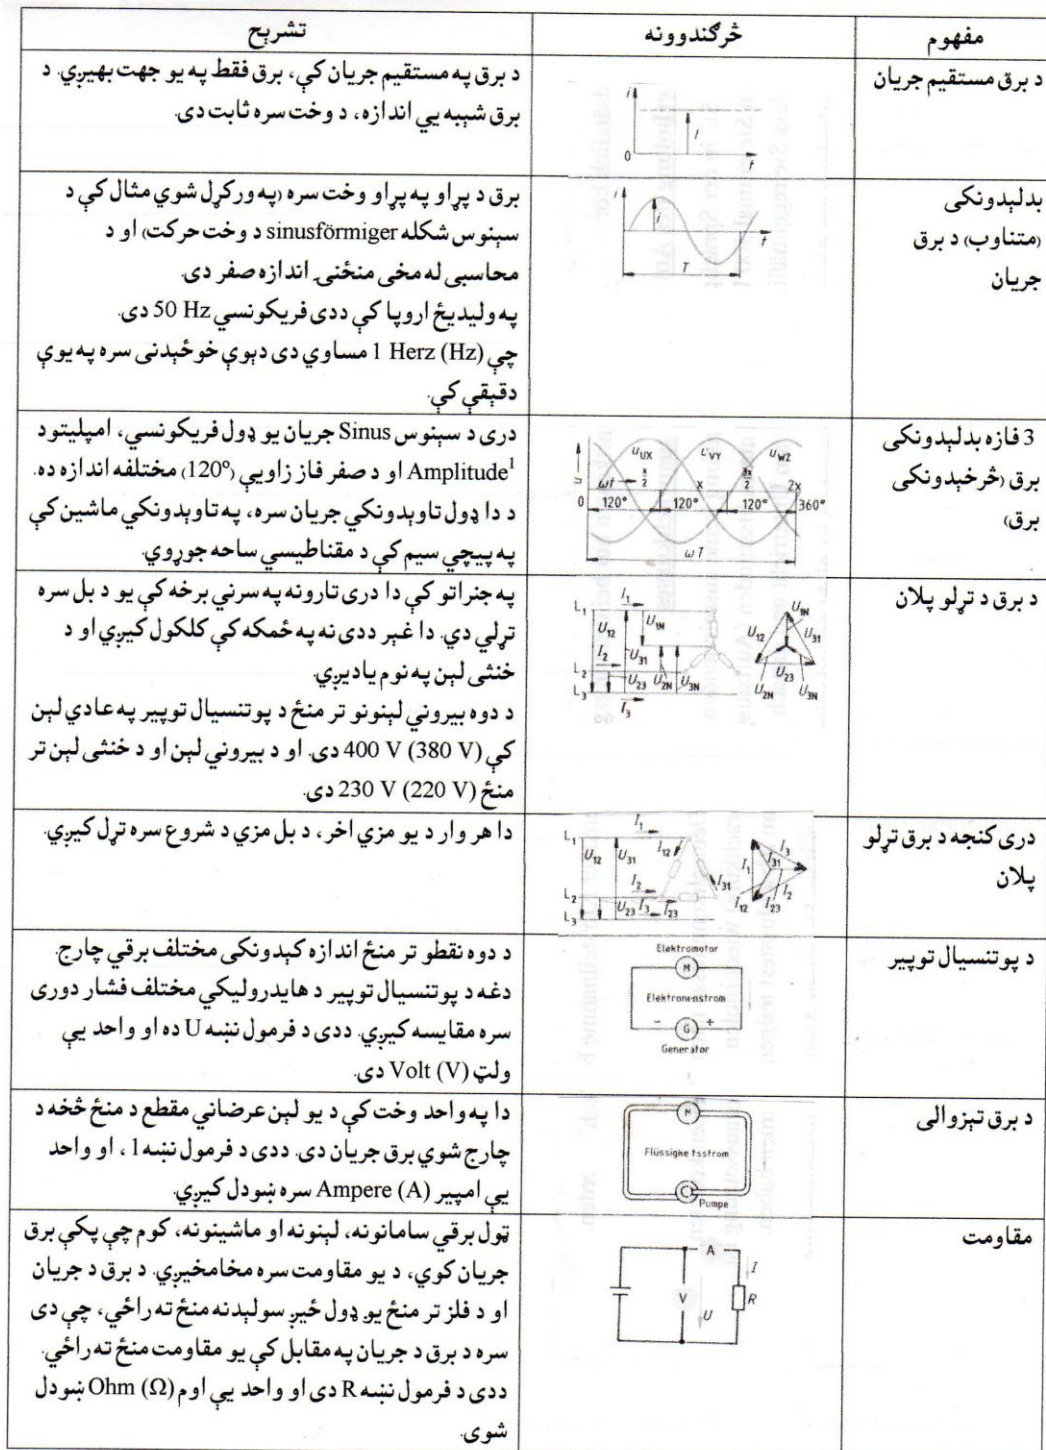 مفهوم
څرګندوونه
تشریح
د برق مستقیم جریان
i
I
0
t
د برق په مستقیم جریان کې، برق فقط په یو جهت بهیږي. د
برق شېبه یي اندازه، د وخت سره ثابت دی.
بدلېدونکی
(متناوب) د برق
جریان
i
i
t
T
برق د پړاو په پړاو وخت سره (په ورکړل شوي مثال کې د
سېنوس شکله sinusförmiger د وخت حرکت) او د
محاسبی له مخی منځنۍ اندازه صفر دی.
په ولیدیځ اروپا کې ددی فریکونسي 50 Hz دی.
چې 1 Herz (Hz) مساوي دی دېوې خوځېدنی سره په یوې
دقیقې کې.
3 فازه بدلېدونکی
برق (څرخېدونکی
برق)
u
uUX
uVY
uWZ
ωt
π/2
π
3π/2
2π
0
120°
120°
120°
360°
ωT
دری د سېنوس Sinus جریان یو ډول فریکونسي، امپلیتود
Amplitude¹ او د صفر فاز زاویې (120°) مختلفه اندازه ده.
د دا ډول تاوېدونکي جریان سره، په تاوېدونکي ماشین کې
په پیچي سیم کې د مقناطیسي ساحه جوړوي.
د برق د تړلو پلان
L1
I1
U12
U1N
U31
L2
I2
U23
U2N
U3N
L3
I3
U1N
U12
U31
U23
U2N
U3N
په جنراتو کې دا دری تارونه په سرني برخه کې یو د بل سره
تړلي دي. دا غبر ددی نه په ځمکه کې کلکول کیږي او د
خنثی لېن په نوم یادیږي.
د دوه بیروني لېنونو تر منځ د پوتنسیال توپیر په عادي لېن
کې 400 V (380 V) دی. او د بیروني لېن او د خنثی لېن تر
منځ 230 V (220 V) دی.
دری کنجه د برق تړلو
پلان
L1
I1
U12
U31
I12
L2
I2
I31
U23
I3
I23
L3
I1
I31
I3
I2
I12
I23
دا هر وار د یو مزي اخر، د بل مزي د شروع سره تړل کیږي.
د پوتنسیال توپیر
Elektromotor
M
Elektronenstrom
− G +
Generator
د دوه نقطو تر منځ اندازه کېدونکی مختلف برقي چارج.
دغه د پوتنسیال توپیر د هایدرولیکي مختلف فشار دوری
سره مقایسه کیږي. ددی د فرمول نښه U ده او واحد یې
ولټ Volt (V) دی.
د برق تېزوالی
M
Flüssigkeitsstrom
Pumpe
دا په واحد وخت کې د یو لېن عرضاني مقطع د منځ څخه د
چارج شوي برق جریان دی. ددی د فرمول نښه I ، او واحد
یې امپیر Ampere (A) سره ښودل کیږي.
مقاومت
A
I
V
R
U
ټول برقي سامانونه، لېنونه او ماشینونه، کوم چې پکې برق
جریان کوي، د یو مقاومت سره مخامخیږي. د برق د جریان
او د فلز تر منځ یو ډول ځیږ سولېدنه منځ ته راځي، چې دی
سره د برق د جریان په مقابل کې یو مقاومت منځ ته راځي.
ددی د فرمول نښه R دی او واحد یې اوم Ohm (Ω) ښودل
شوی.